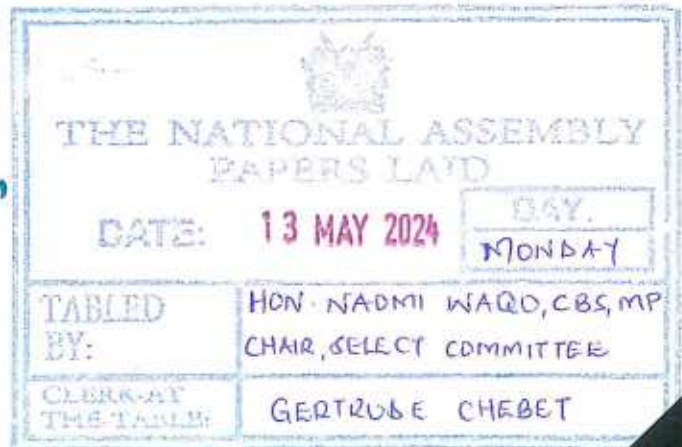 THE NATIONAL ASSEMBLY
PAPERS LAID
DATE: 13 MAY 2024
DAY.
MONDAY
TABLED BY:
HON. NAOMI WAQO, CBS, MP
CHAIR, SELECT COMMITTEE
CLERK-AT THE-TABLE:
GERTRUDE CHEBET